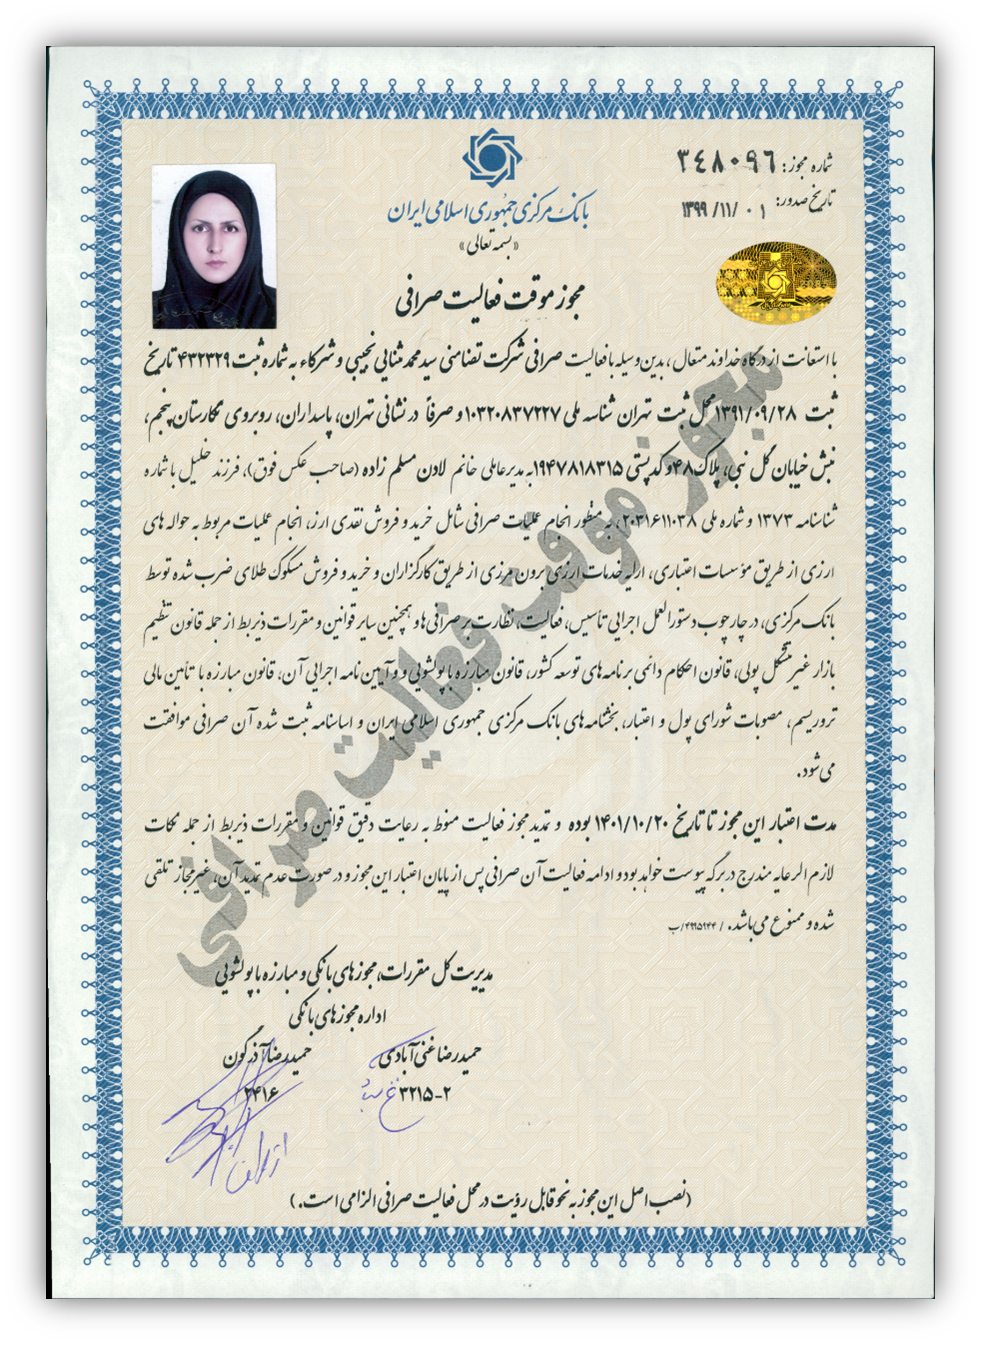 شماره مجوز: ۳۴۸۰۹۶
تاریخ صدور: ۱۳۹۹/۱۱/۰۱
بانک مرکزی جمهوری اسلامی ایران
«بسمه تعالی»
مجوز موقت فعالیت صرافی
با استعانت از درگاه خداوند متعال، بدین وسیله با فعالیت صرافی شرکت تضامنی سید محمد ثنایی نجیبی و شرکاء به شماره ثبت ۴۳۲۳۲۹ تاریخ
ثبت ۱۳۹۱/۰۹/۲۸ محل ثبت تهران شناسه ملی ۱۰۳۲۰۸۳۷۲۲۷ و صرفاً در نشانی تهران، پاسداران، روبروی نگارستان پنجم،
نبش خیابان گل نبی، پلاک ۴۸ و کدپستی ۱۹۴۷۸۱۸۳۱۵ به مدیرعاملی خانم لادن مسلم زاده (صاحب عکس فوق)، فرزند خلیل با شماره
شناسنامه ۱۳۷۳ و شماره ملی ۲۰۳۱۶۱۱۰۳۸، به منظور انجام عملیات صرافی شامل خرید و فروش نقدی ارز، انجام عملیات مربوط به حواله های
ارزی از طریق مؤسسات اعتباری، ارائه خدمات ارزی برون مرزی از طریق کارگزاران و خرید و فروش مسکوک طلای ضرب شده توسط
بانک مرکزی، در چارچوب دستورالعمل اجرایی تأسیس، فعالیت، نظارت بر صرافی ها و همچنین سایر قوانین و مقررات ذیربط از جمله قانون تنظیم
بازار غیر متشکل پولی، قانون احکام دائمی برنامه های توسعه کشور، قانون مبارزه با پولشویی و و آیین نامه اجرایی آن، قانون مبارزه با تأمین مالی
تروریسم، مصوبات شورای پول و اعتبار، بخشنامه های بانک مرکزی جمهوری اسلامی ایران و اساسنامه ثبت شده آن صرافی موافقت
می شود.
مدت اعتبار این مجوز تا تاریخ ۱۴۰۱/۱۰/۲۰ بوده و تمدید مجوز فعالیت منوط به رعایت دقیق قوانین و مقررات ذیربط از جمله نکات
لازم الرعایه مندرج در برگه پیوست خواهد بود و ادامه فعالیت آن صرافی پس از پایان اعتبار این مجوز و در صورت عدم تمدید آن، غیرمجاز تلقی
شده و ممنوع می باشد. / ۴۹۹۵۹۴۴/ب
مجوز موقت فعالیت صرافی
مدیریت کل مقررات، مجوزهای بانکی و مبارزه با پولشویی
اداره مجوزهای بانکی
حمیدرضا غنی آبادی
حمیدرضا آذرگون
۳۲۱۵-۲
۲۴۱۶
(نصب اصل این مجوز به نحو قابل رؤیت در محل فعالیت صرافی الزامی است.)